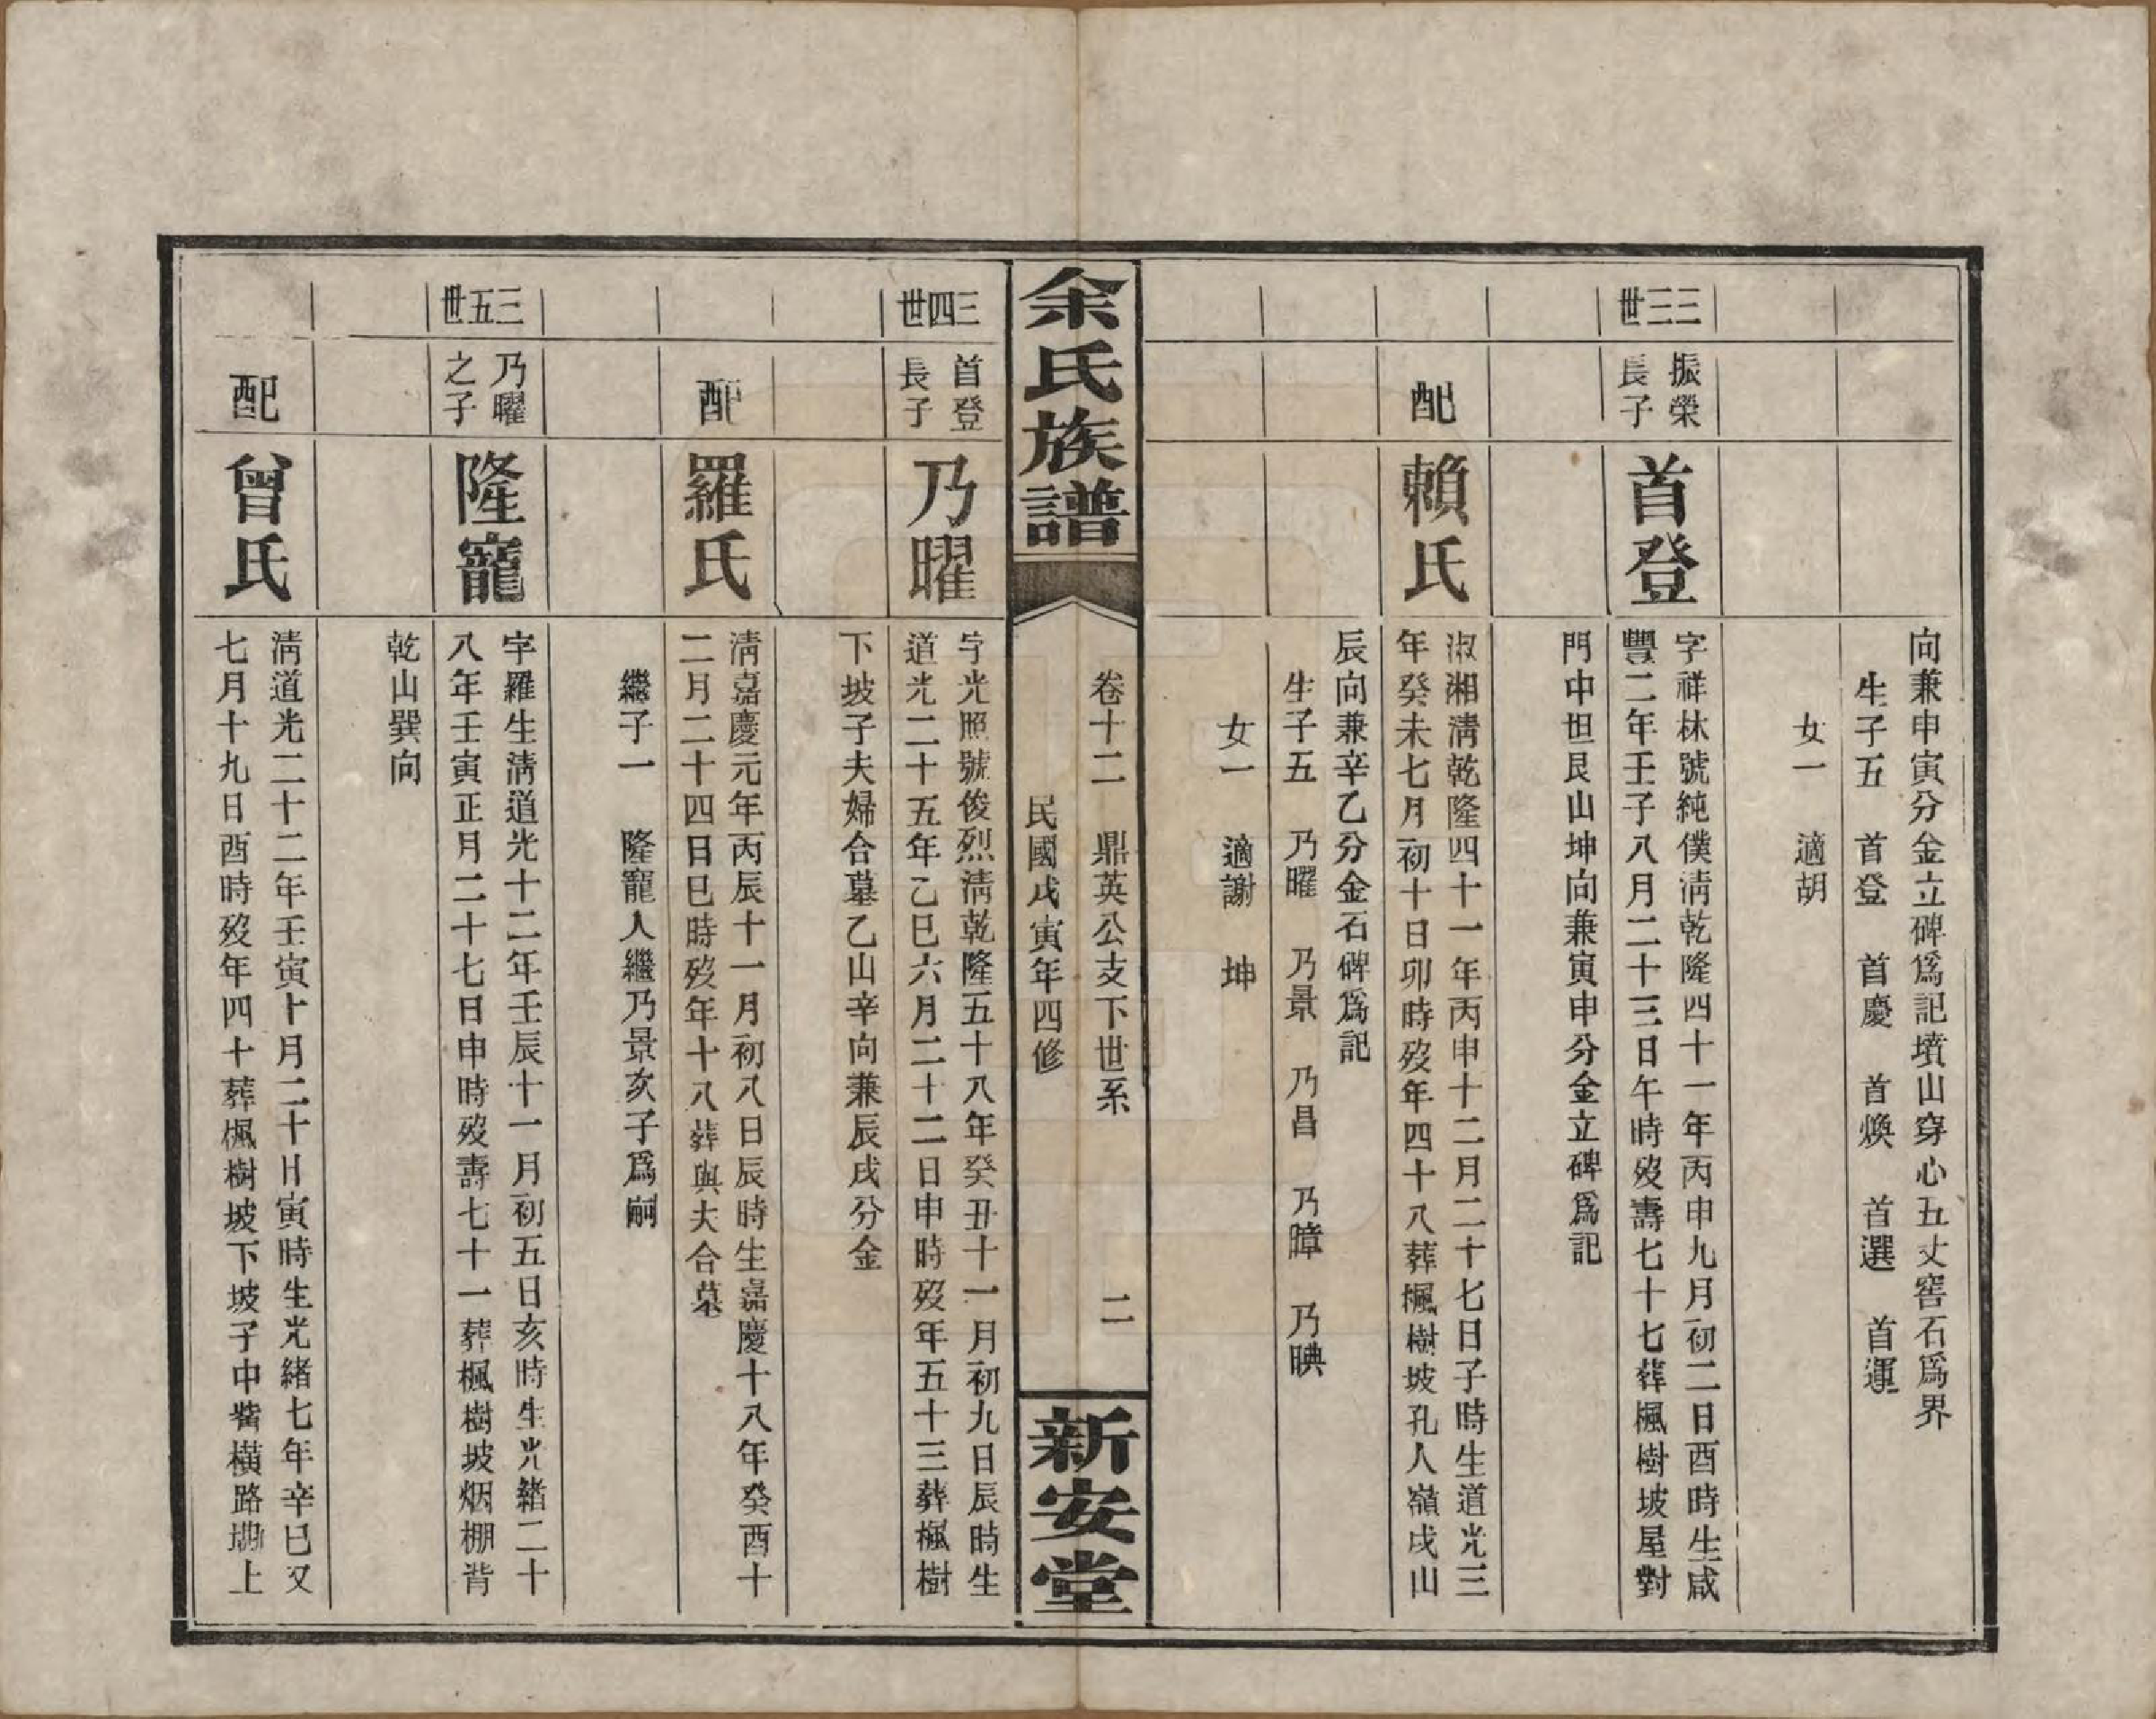 向兼申寅分金立碑爲記墳山穿心五丈窖石爲界
生子五　首登　首慶　首煥　首選　首運
女一　適胡
三三世
振榮長子
首登
字祥林號純僕淸乾隆四十一年丙申九月初二日酉時生咸
豐二年壬子八月二十三日午時歿壽七十七葬楓樹坡屋對
門中世艮山坤向兼寅申分金立碑爲記
配
賴氏
淑湘淸乾隆四十一年丙申十二月二十七日子時生道光三
年癸未七月初十日卯時歿年四十八葬楓樹坡孔人嶺戌山
辰向兼辛乙分金石碑爲記
生子五　乃曜　乃景　乃昌　乃暲　乃晪
女一　適謝　坤
余氏族譜
卷十二　鼎英公支下世系　二
民國戊寅年四修
新安堂
三四世
首登長子
乃曜
字光照號俊烈淸乾隆五十八年癸丑十一月初九日辰時生
道光二十五年乙巳六月二十二日申時歿年五十三葬楓樹
下坡子夫婦合墓乙山辛向兼辰戌分金
配
羅氏
淸嘉慶元年丙辰十一月初八日辰時生嘉慶十八年癸酉十
二月二十四日巳時歿年十八葬與夫合墓
繼子一　隆寵人繼乃景次子爲嗣
三五世
乃曜之子
隆寵
字羅生淸道光十二年壬辰十一月初五日亥時生光緖二十
八年壬寅正月二十七日申時歿壽七十一葬楓樹坡烟棚背
乾山巽向
配
曾氏
淸道光二十二年壬寅十月二十日寅時生光緖七年辛巳又
七月十九日酉時歿年四十葬楓樹坡下坡子中觜橫路塝上